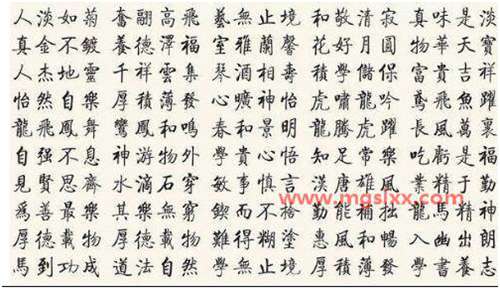 人淡如菊 奮翮高飛 藝無止境 和敬清寂 真味是淡
真金不鍍 養德澤福 室雅蘭馨 花好月圓 物華天寶
人杰地靈 千祥雲集 琴酒相壽 學儲保 富貴吉祥
怡然自樂 厚積薄發 心曠神怡 虎嘯龍吟 鳶飛魚躍
龍飛鳳舞 鸞鳳和鳴 春和景明 龍騰虎躍 長風萬裏
自强不息 神游物外 學貴心悟 知足常樂 吃虧是福
見賢思齊 水滴石穿 敏事慎言 漢唐雄風 業精于勤
www.mgslxx.com
爲善最樂 其樂無窮 鍥而不捨 勤能補拙 龍馬精神
厚德載物 厚德載物 難得糊塗 惠風和暢 入幽出朗
馬到功成 道法 學無止境 厚積薄發 學書養志